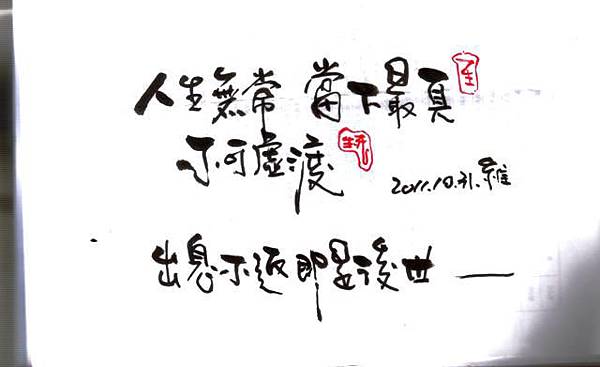 人生無常 當下最真
不可虛渡
2011.10.31.羅
出息不返即是後世